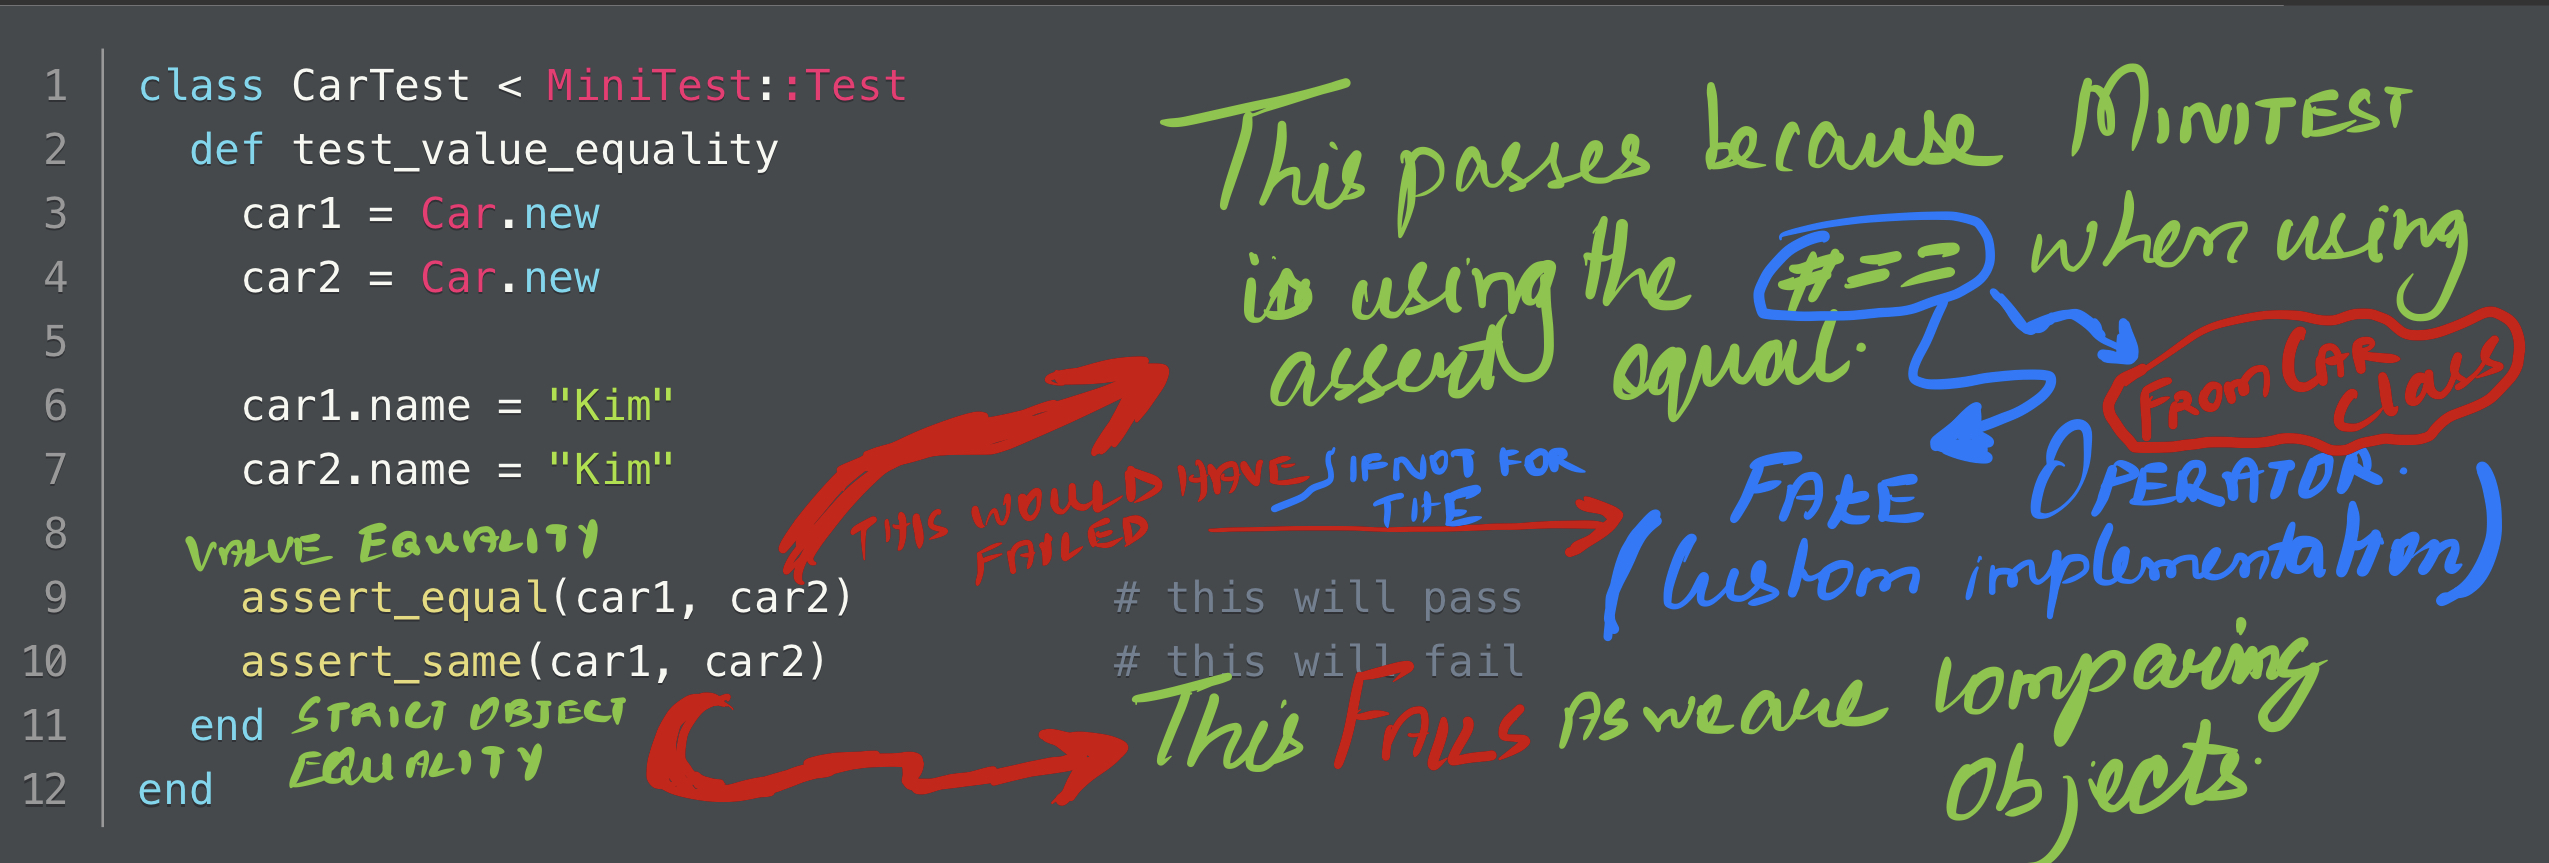 1 class CarTest < MiniTest::Test
2 def test_value_equality
3 car1 = Car.new
4 car2 = Car.new
5
6 car1.name = "Kim"
7 car2.name = "Kim"
8
VALUE EQUALITY
9 assert_equal(car1, car2) # this will pass
10 assert_same(car1, car2) # this will fail
11 end
STRICT OBJECT
EQUALITY
12 end
This passes because MINITEST
is using the #== when using
assert equal.
FROM CAR
Class
THIS WOULD HAVE
FAILED
IF NOT FOR
THE
FAKE OPERATOR.
(Custom implementation)
This FAILS AS we are comparing
Objects.